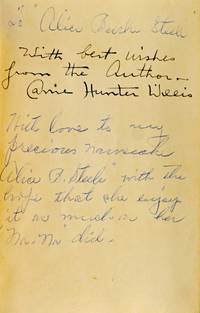 To Alice Burke Steele
With best wishes
from the Author—
Carrie Hunter Willis
With love to my
precious namesake
"Alice B. Steele" with the
hope that she enjoys
it as much as her
did.